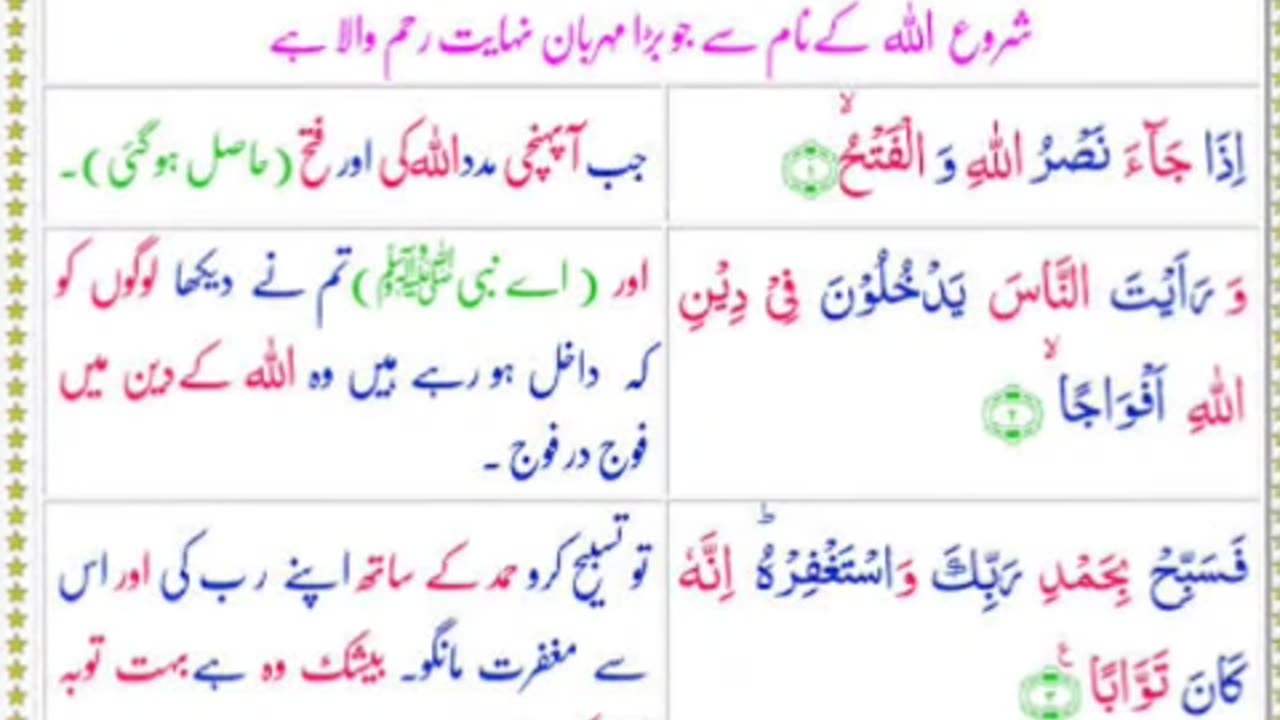 شروع اللہ کے نام سے جو بڑا مہربان نہایت رحم والا ہے
اِذَا جَآءَ نَصْرُ اللّٰهِ وَ الْفَتْحُۙ۝۱
جب آ پہنچی مدد اللہ کی اور فتح (حاصل ہو گئی)۔
وَ رَاَيْتَ النَّاسَ يَدْخُلُوْنَ فِيْ دِيْنِ
اللّٰهِ اَفْوَاجًاۙ۝۲
اور (اے نبی ﷺ) تم نے دیکھا لوگوں کو
کہ داخل ہو رہے ہیں وہ اللہ کے دین میں
فوج در فوج ۔
فَسَبِّحْ بِحَمْدِ رَبِّكَ وَاسْتَغْفِرْهُؕ اِنَّهٗ
كَانَ تَوَّابًا۝۳
تو تسبیح کرو حمد کے ساتھ اپنے رب کی اور اس
سے مغفرت مانگو۔ بیشک وہ ہے بہت توبہ